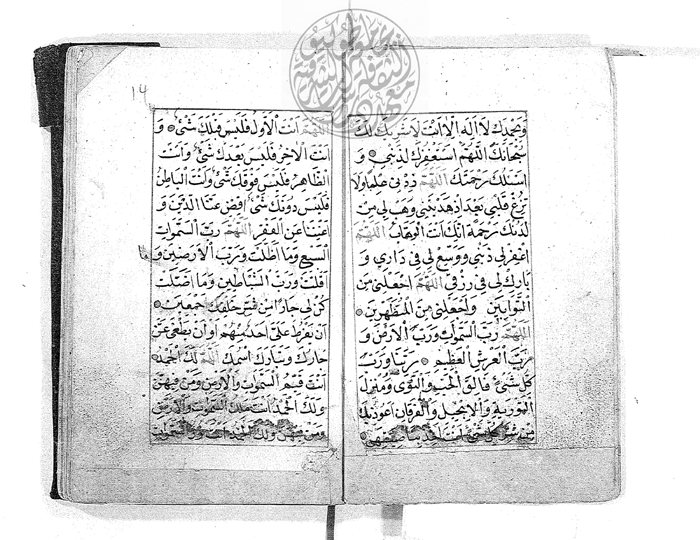 وبحمدك لا اله الا انت لا شريك لك
سبحانك اللهم استغفرك لذنبي و
اسئلك رحمتك اللهم زدني علما ولا
تزغ قلبي بعد اذ هديتني وهب لي من
لدنك رحمة انك انت الوهاب اللهم
اغفر لي ذنبي ووسع لي في داري و
بارك لي في رزقي اللهم اجعلني من
التوابين واجعلني من المتطهرين
اللهم رب السموات ورب الارض و
رب العرش العظيم ربنا ورب
كل شئ فالق الحب والنوى ومنزل
التورية والانجيل والفرقان اعوذ بك
من شر كل شئ انت اخذ بناصيته
14
اللهم انت الاول فليس قبلك شئ و
انت الاخر فليس بعدك شئ وانت
الظاهر فليس فوقك شئ وانت الباطن
فليس دونك شئ اقض عنا الدين و
اغننا من الفقر اللهم رب السموات
السبع وما اظلت ورب الارضين وما
اقلت ورب الشياطين وما اضلت
كن لي جارا من شر خلقك جميعا
ان يفرط علي احد منهم او ان يطغى عز
جارك وتبارك اسمك اللهم لك الحمد
انت قيم السموات والارض ومن فيهن
ولك الحمد انت ملك السموات والارض
ومن فيهن ولك الحمد انت نور السموات